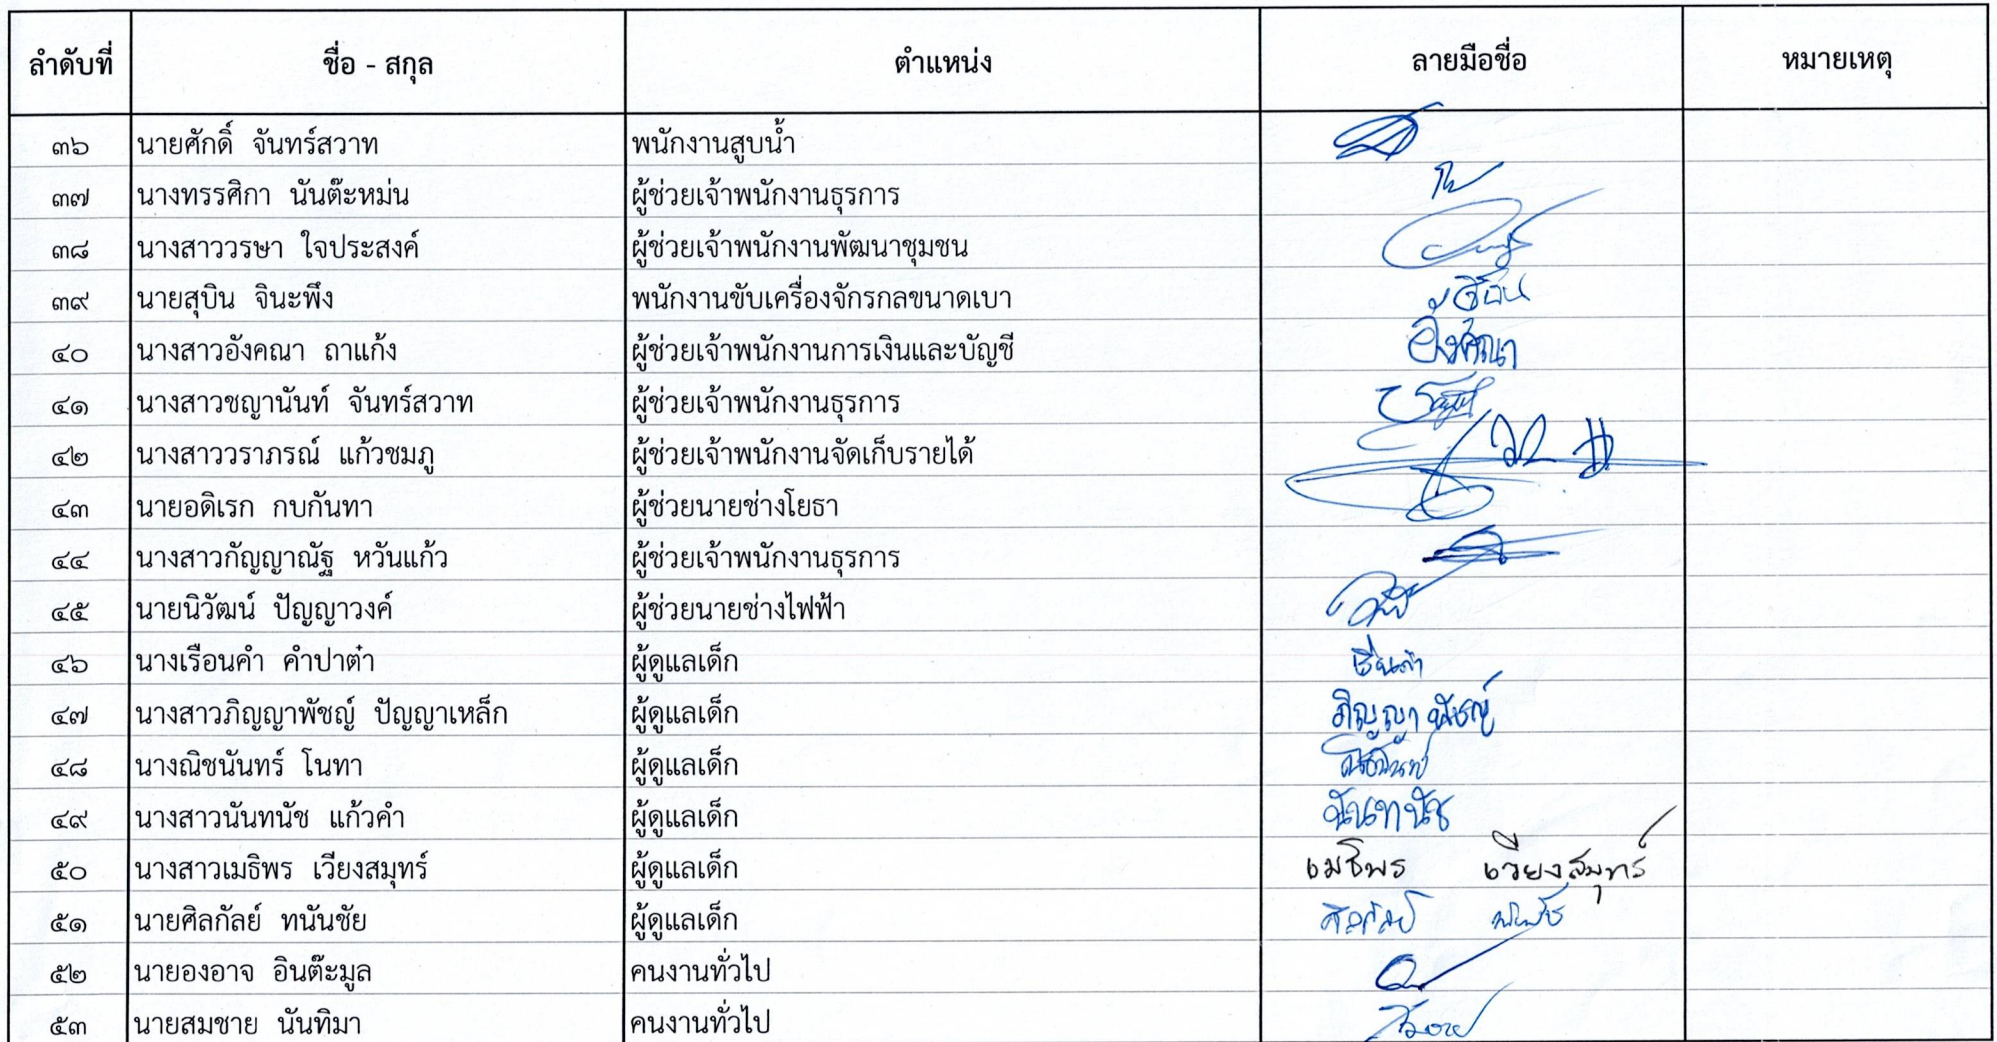 ลำดับที่ ชื่อ - สกุล ตำแหน่ง ลายมือชื่อ หมายเหตุ
๓๖ นายศักดิ์ จันทร์สวาท พนักงานสูบน้ำ
๓๗ นางทรรศิกา นันต๊ะหม่น ผู้ช่วยเจ้าพนักงานธุรการ
๓๘ นางสาววรษา ใจประสงค์ ผู้ช่วยเจ้าพนักงานพัฒนาชุมชน
๓๙ นายสุบิน จินะพึง พนักงานขับเครื่องจักรกลขนาดเบา
๔๐ นางสาวอังคณา ถาแก้ง ผู้ช่วยเจ้าพนักงานการเงินและบัญชี อังคณา
๔๑ นางสาวชญานันท์ จันทร์สวาท ผู้ช่วยเจ้าพนักงานธุรการ
๔๒ นางสาววราภรณ์ แก้วชมภู ผู้ช่วยเจ้าพนักงานจัดเก็บรายได้
๔๓ นายอดิเรก กบกันทา ผู้ช่วยนายช่างโยธา
๔๔ นางสาวกัญญาณัฐ หวันแก้ว ผู้ช่วยเจ้าพนักงานธุรการ
๔๕ นายนิวัฒน์ ปัญญาวงค์ ผู้ช่วยนายช่างไฟฟ้า
๔๖ นางเรือนคำ คำปาต๋า ผู้ดูแลเด็ก
๔๗ นางสาวภิญญาพัชญ์ ปัญญาเหล็ก ผู้ดูแลเด็ก ภิญญาพัชญ์
๔๘ นางณิชนันทร์ โนทา ผู้ดูแลเด็ก
๔๙ นางสาวนันทนัช แก้วคำ ผู้ดูแลเด็ก นันทนัช
๕๐ นางสาวเมธิพร เวียงสมุทร์ ผู้ดูแลเด็ก เมธิพร เวียงสมุทร์
๕๑ นายศิลกัลย์ ทนันชัย ผู้ดูแลเด็ก
๕๒ นายองอาจ อินต๊ะมูล คนงานทั่วไป
๕๓ นายสมชาย นันทิมา คนงานทั่วไป